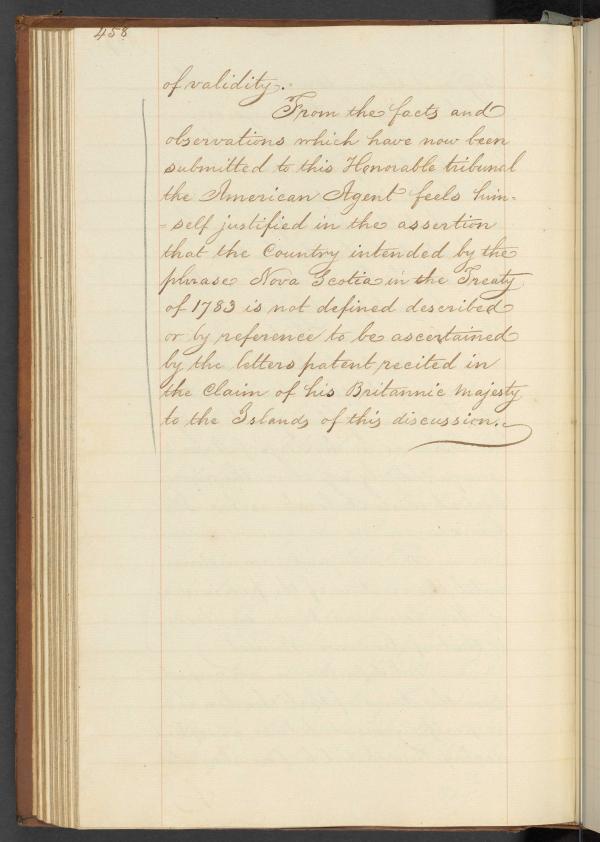 458
of validity.
From the facts and
observations which have now been
submitted to this Honorable tribunal
the American Agent feels him-
-self justified in the assertion
that the Country intended by the
phrase Nova Scotia in the Treaty
of 1783 is not defined described
or by reference to be ascertained
by the letters patent recited in
the Claim of his Britannic Majesty
to the Islands of this discussion.